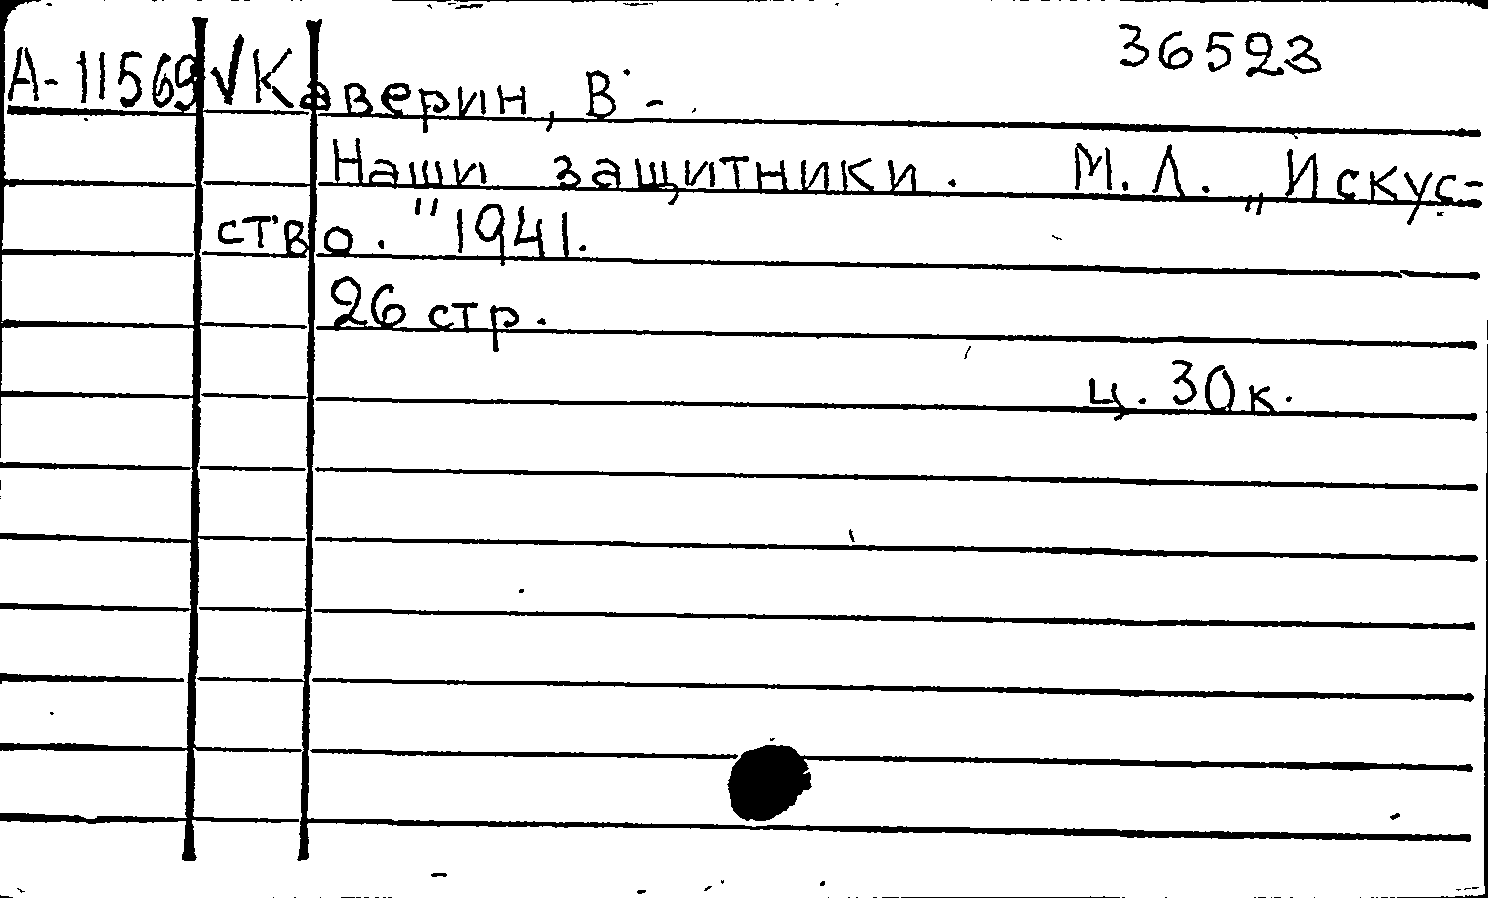 36523
А-11569 √ Каверин, В. -
Наши защитники. М. Л. „Искус-
ство." 1941.
26 стр.
ц. 30 к.